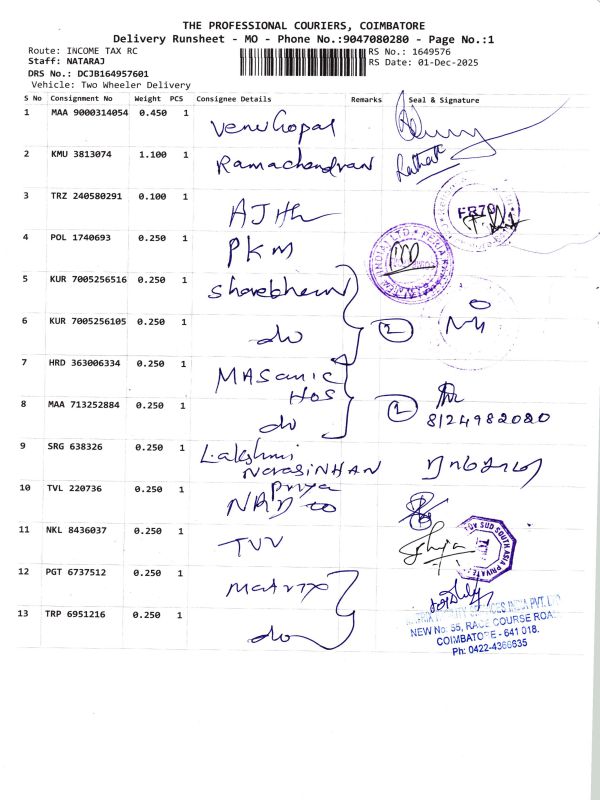 THE PROFESSIONAL COURIERS, COIMBATORE
Delivery Runsheet - MO - Phone No.:9047080280 - Page No.:1
Route: INCOME TAX RC RS No.: 1649576
Staff: NATARAJ RS Date: 01-Dec-2025
DRS No.: DCJB164957601
Vehicle: Two Wheeler Delivery
S No Consignment No Weight PCS Consignee Details Remarks Seal & Signature
1 MAA 9000314054 0.450 1 Venu Gopal
2 KMU 3813074 1.100 1 Ramachandran
3 TRZ 240580291 0.100 1 AJith
4 POL 1740693 0.250 1 PKM
5 KUR 7005256516 0.250 1
6 KUR 7005256105 0.250 1 do 2
7 HRD 363006334 0.250 1 MASonic
HOS
8 MAA 713252884 0.250 1 do 2 8124982020
9 SRG 638326 0.250 1 Lakshmi
NarasiNHAN
10 TVL 220736 0.250 1 Priya
11 NKL 8436037 0.250 1 TVV
SUD SOUTH ASIA PRIVATE
12 PGT 6737512 0.250 1 Matrix
13 TRP 6951216 0.250 1 do
INDIA PVT. LTD
NEW No: 55, RACE COURSE ROAD
COIMBATORE - 641 018.
Ph: 0422-4366635